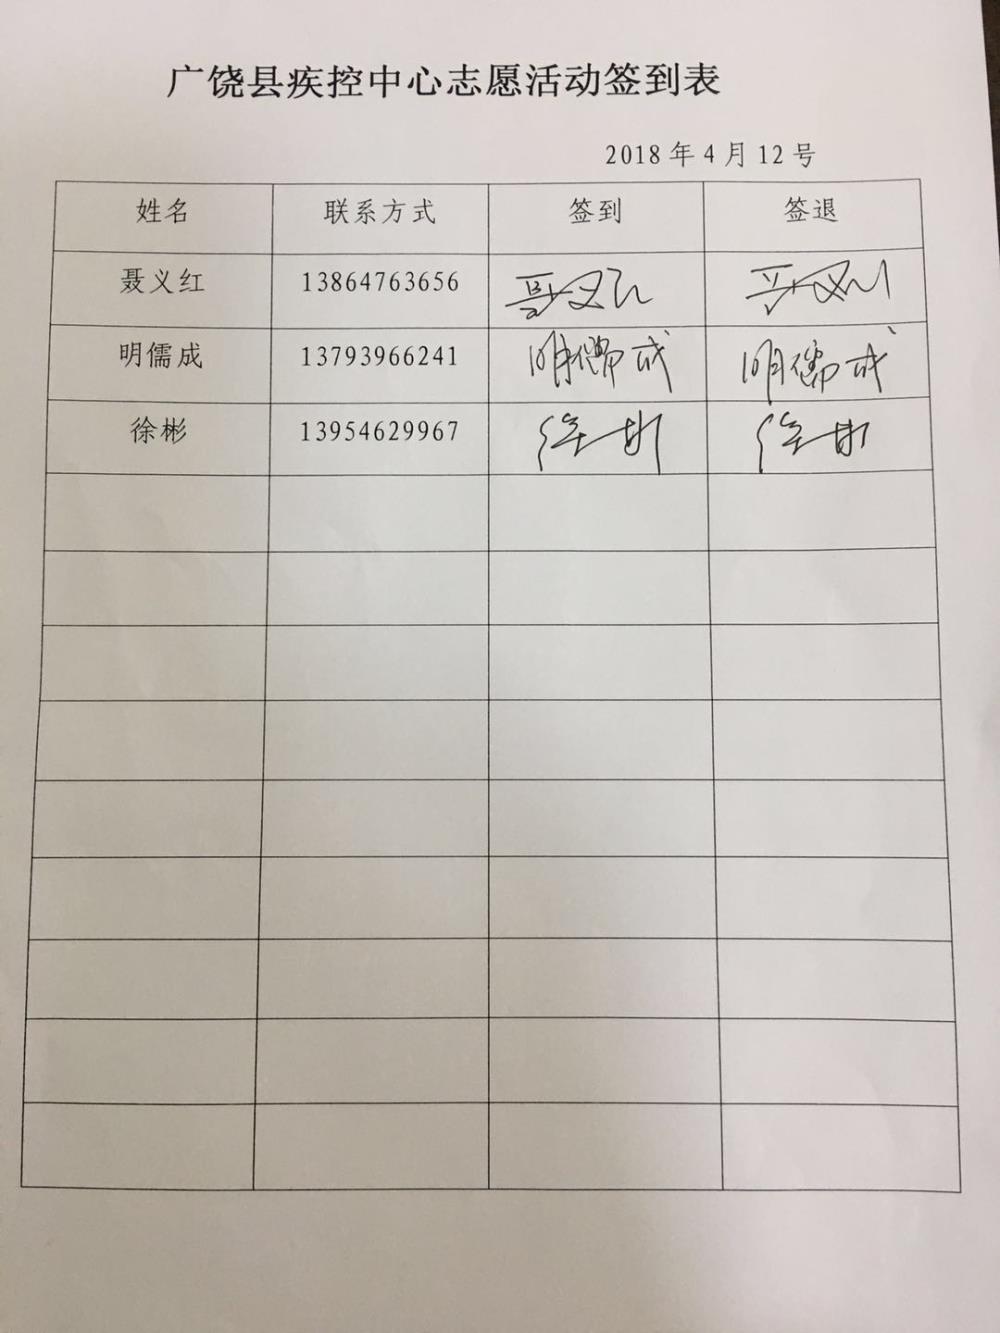 广饶县疾控中心志愿活动签到表
2018年4月12号
姓名 联系方式 签到 签退
聂义红 13864763656 聂义红 聂义红
明儒成 13793966241 明儒成 明儒成
徐彬 13954629967 徐彬 徐彬